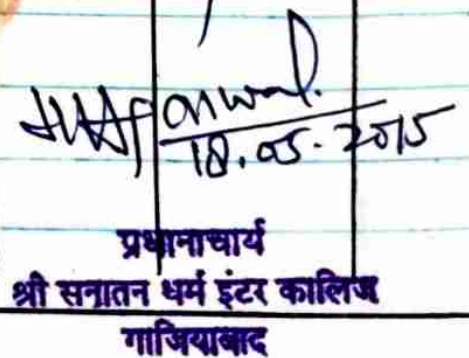 18.05.2015
प्रधानाचार्य
श्री सनातन धर्म इंटर कालिज
गाजियाबाद